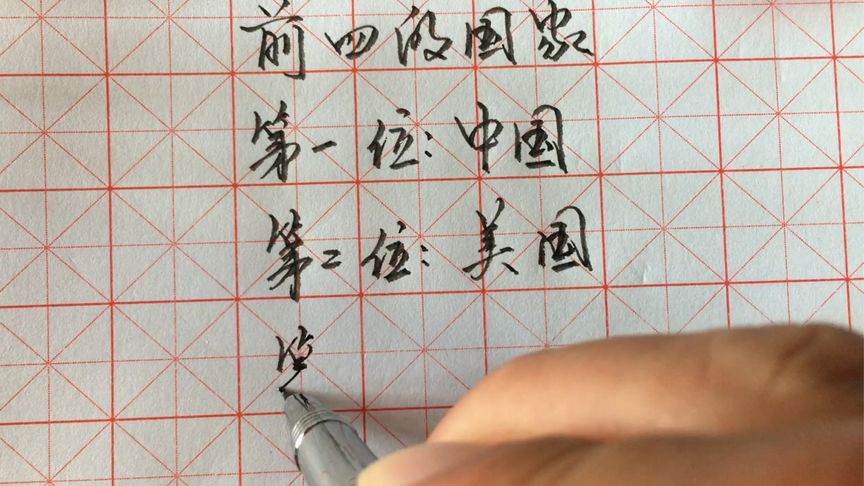 前四的国家
第一位:中国
第二位:美国